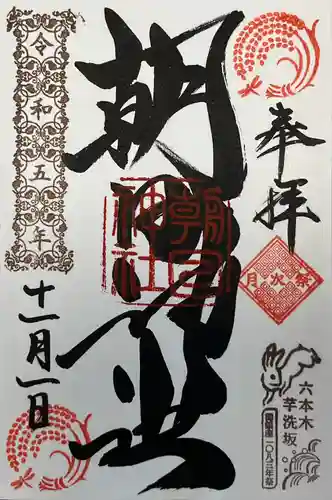 奉拝
月次祭
六本木
芋洗坂
一〇八三年祭
朝日
朝日
神社
令和五年
十一月一日